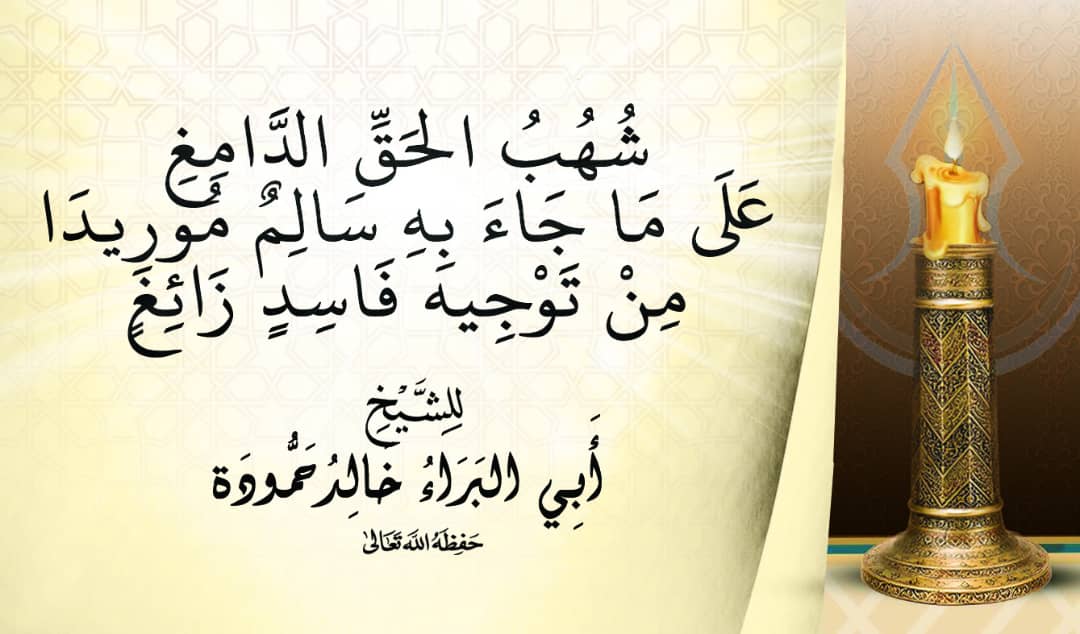 شُهُبُ الحَقِّ الدَّامِغِ
عَلَى مَا جَاءَ بِهِ سَالِمٌ مُورِيدَا
مِنْ تَوْجِيهَ فَاسِدٍ زَائِغٍ
لِلشَّيْخِ
أَبِي البَرَاءُ خَالِدُ حَمُّودَة
حَفِظَهُ اللَّهَ تَعَالَى